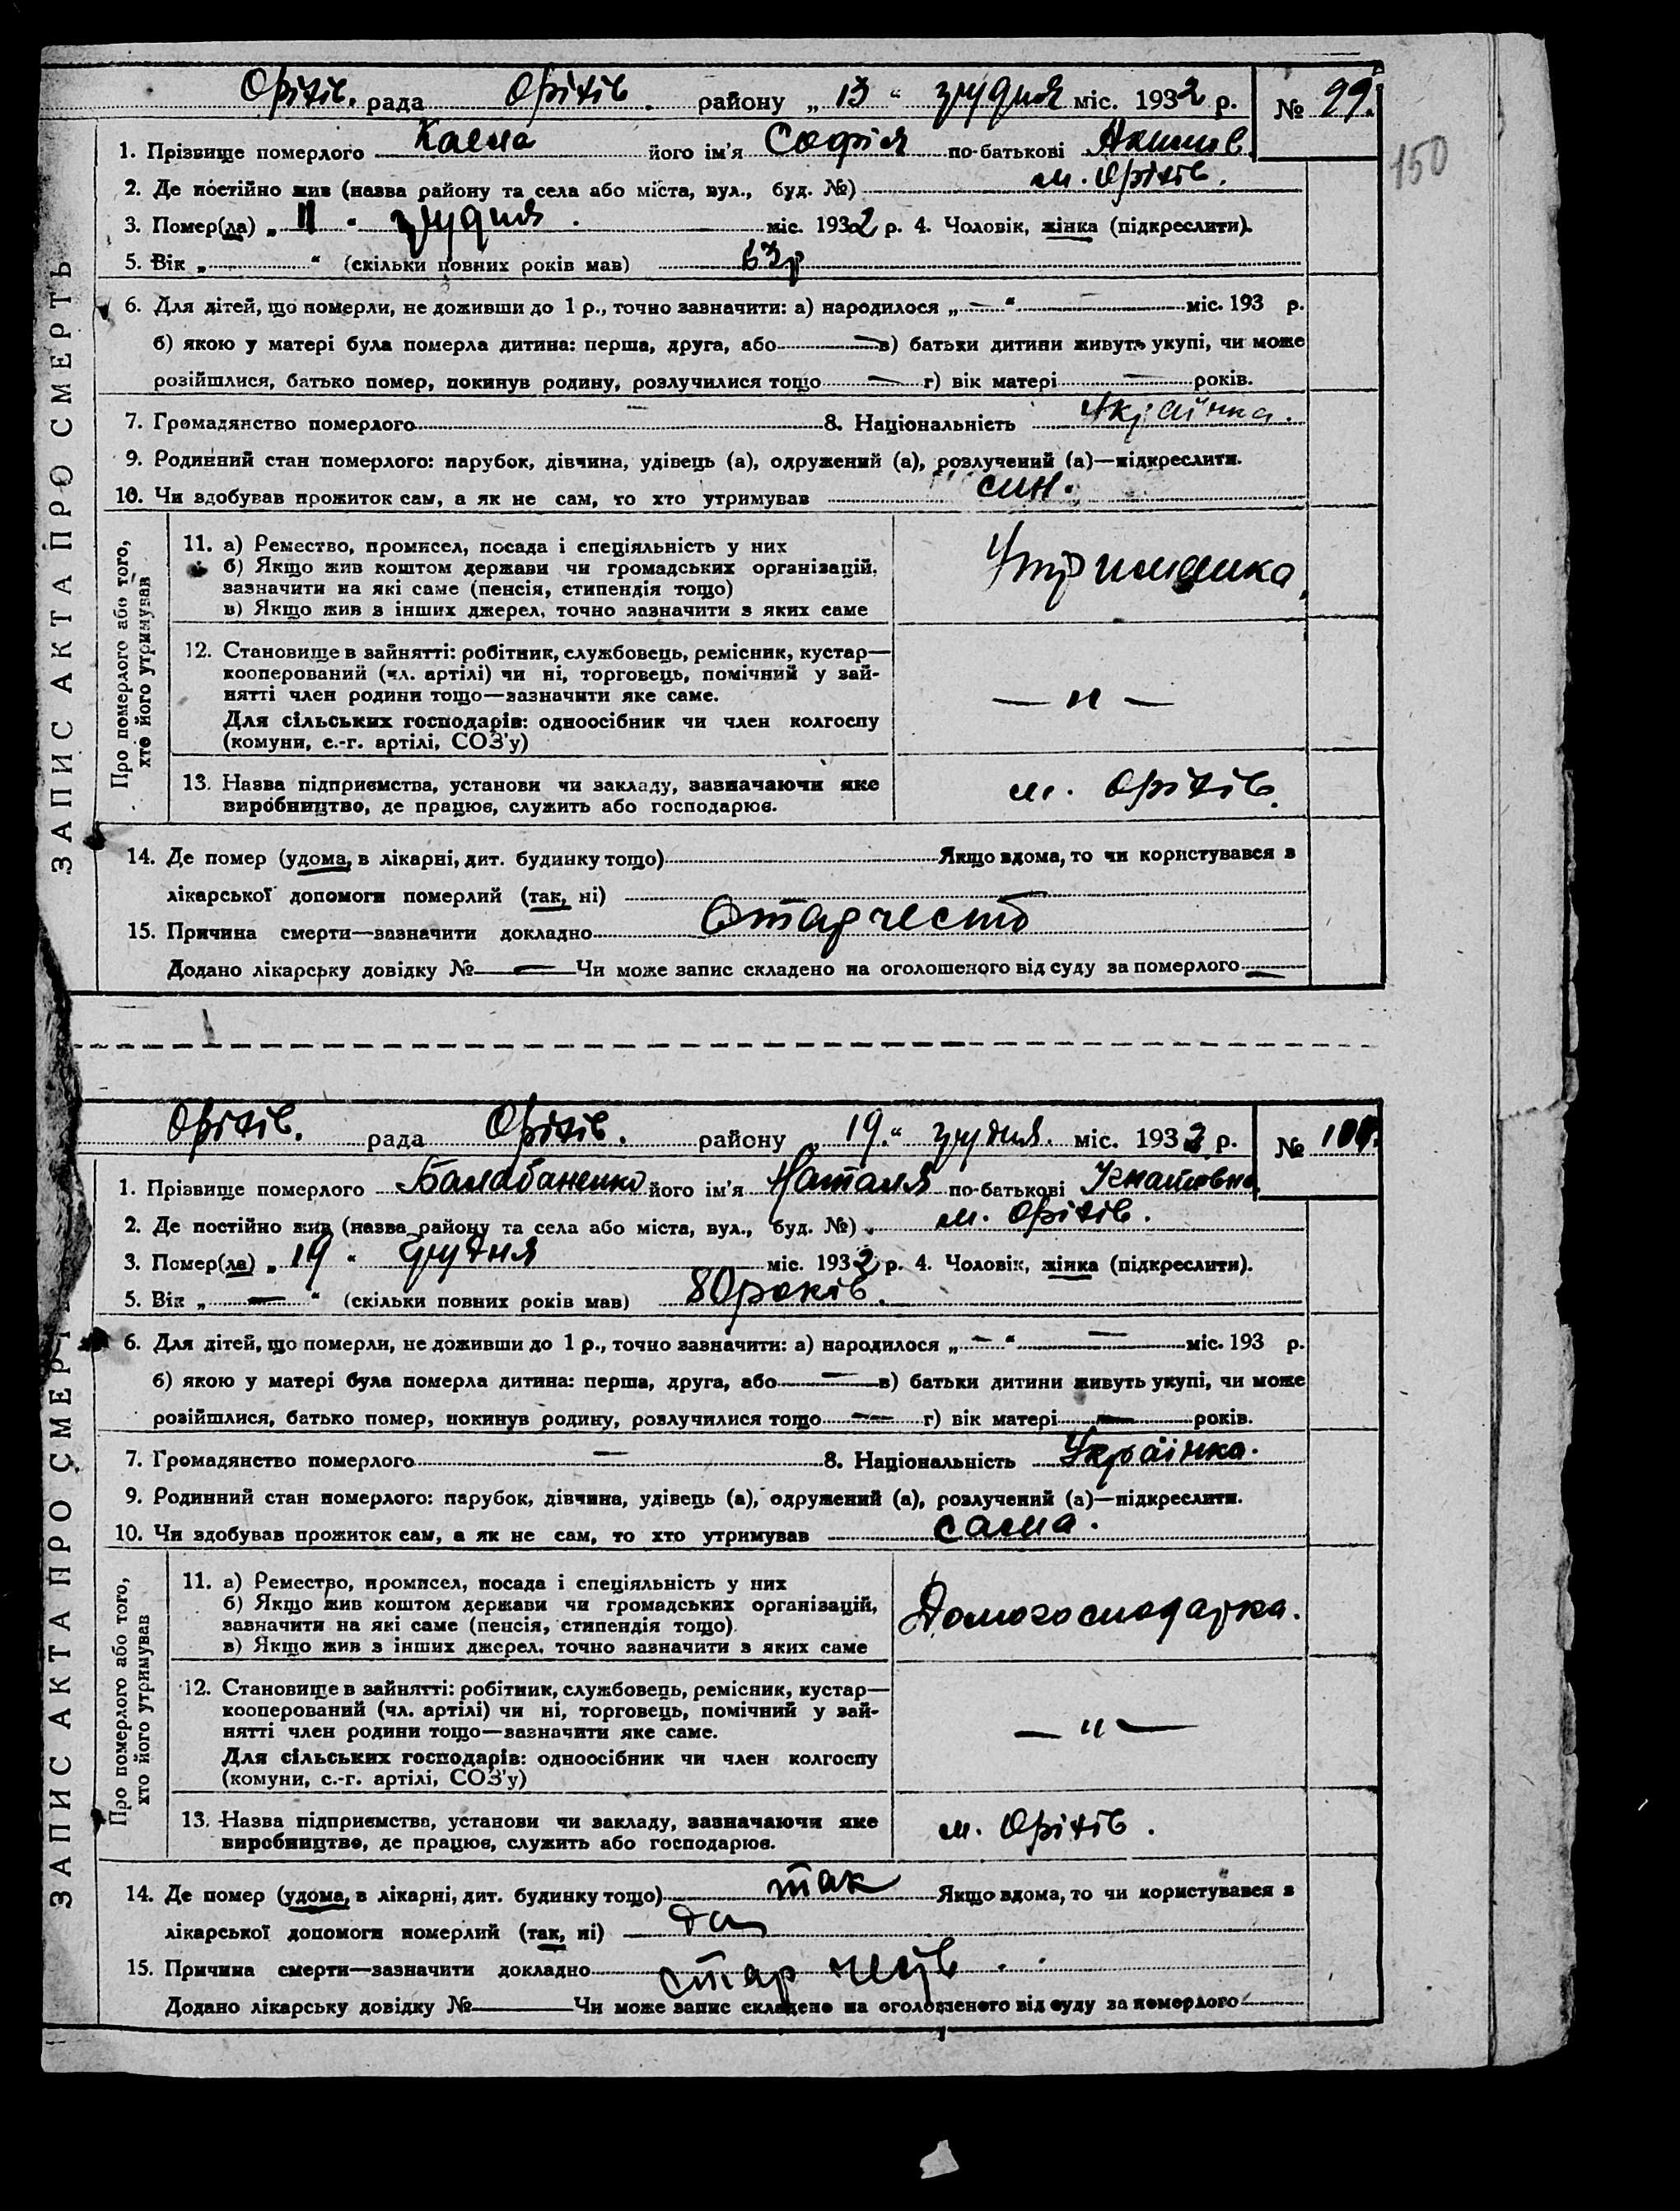 Оріхів. рада Оріхів. району „ 13 “ грудня міс. 1932 р. № 99.
150
1. Прізвище померлого його ім'я Софія по-батькові
2. Де постійно жив (назва району та села або міста, вул., буд. №) м. Оріхів.
3. Помер(ла) „ 11 “ грудня. міс. 1932 р. 4. Чоловік, жінка (підкреслити).
5. Вік „ “ (скільки повних років мав) 63 р
6. Для дітей, що померли, не доживши до 1 р., точно зазначити: а) народилося „ — “ — міс. 193 р.
б) якою у матері була померла дитина: перша, друга, або — в) батьки дитини живуть укупі, чи може
розійшлися, батько помер, покинув родину, розлучилися тощо — г) вік матері — років.
7. Громадянство померлого — 8. Національність Українка.
9. Родинний стан померлого: парубок, дівчина, удівець (а), одружений (а), розлучений (а)—підкреслити.
10. Чи здобував прожиток сам, а як не сам, то хто утримував син.
ЗАПИС АКТА ПРО СМЕРТЬ
Про померлого або того, хто його утримував
11. а) Ремество, промисел, посада і спеціяльність у них
б) Якщо жив коштом держави чи громадських організацій,
зазначити на які саме (пенсія, стипендія тощо)
в) Якщо жив з інших джерел, точно зазначити з яких саме
Утриманка
12. Становище в зайнятті: робітник, службовець, ремісник, кустар—
кооперований (чл. артілі) чи ні, торговець, помічний у зай-
нятті член родини тощо—зазначити яке саме.
Для сільських господарів: одноосібник чи член колгоспу
(комуни, с.-г. артілі, СОЗ'у)
— „ —
13. Назва підприємства, установи чи закладу, зазначаючи яке
виробництво, де працює, служить або господарює.
м. Оріхів.
14. Де помер (удома, в лікарні, дит. будинку тощо) Якщо вдома, то чи користувався з
лікарської допомоги померлий (так, ні)
15. Причина смерти—зазначити докладно
Додано лікарську довідку № — Чи може запис складено на оголошеного від суду за померлого —
Оріхів. рада Оріхів. району „ 19. “ грудня. міс. 1932 р. № 100.
1. Прізвище померлого Балабаненко його ім'я Наталя по-батькові Ігнатовна
2. Де постійно жив (назва району та села або міста, вул., буд. №) м. Оріхів.
3. Помер(ла) „ 19 “ грудня міс. 1932 р. 4. Чоловік, жінка (підкреслити).
5. Вік „ — “ (скільки повних років мав) 80 років.
6. Для дітей, що померли, не доживши до 1 р., точно зазначити: а) народилося „ — “ — міс. 193 р.
б) якою у матері була померла дитина: перша, друга, або — в) батьки дитини живуть укупі, чи може
розійшлися, батько помер, покинув родину, розлучилися тощо — г) вік матері — років.
7. Громадянство померлого — 8. Національність Українка.
9. Родинний стан померлого: парубок, дівчина, удівець (а), одружений (а), розлучений (а)—підкреслити.
10. Чи здобував прожиток сам, а як не сам, то хто утримував сама.
ЗАПИС АКТА ПРО СМЕР
Про померлого або того, хто його утримував
11. а) Ремество, промисел, посада і спеціяльність у них
б) Якщо жив коштом держави чи громадських організацій,
зазначити на які саме (пенсія, стипендія тощо)
в) Якщо жив з інших джерел, точно зазначити з яких саме
Домогосподарка.
12. Становище в зайнятті: робітник, службовець, ремісник, кустар—
кооперований (чл. артілі) чи ні, торговець, помічний у зай-
нятті член родини тощо—зазначити яке саме.
Для сільських господарів: одноосібник чи член колгоспу
(комуни, с.-г. артілі, СОЗ'у)
— „ —
13. Назва підприємства, установи чи закладу, зазначаючи яке
виробництво, де працює, служить або господарює.
м. Оріхів.
14. Де помер (удома, в лікарні, дит. будинку тощо) так Якщо вдома, то чи користувався з
лікарської допомоги померлий (так, ні) да
15. Причина смерти—зазначити докладно
Додано лікарську довідку № Чи може запис складено на оголошеного від суду за померлого